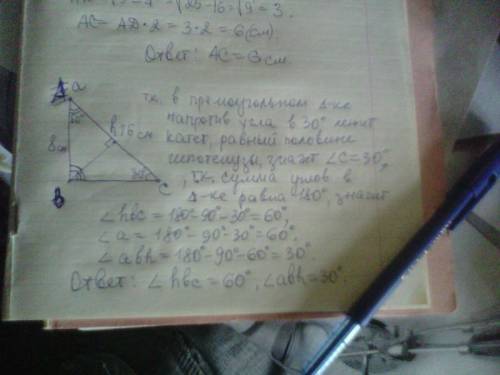 = √25-16 = √9 = 3.
AC= AD·2=3·2=6(см).
Ответ: AC=6см.
a
h 16 см
8см
B
C
30°
т.к. в прямоугольном Δ-ке
напротив угла в 30° лежит
катет, равный половине
гипотенузы, значит ∠C=30°,
, т.к. сумма углов в
Δ-ке равна 180°, значит
∠hbc=180°-90°-30°=60°,
∠a=180°-90°-30°=60°.
∠abh=180°-90°-60°=30°.
Ответ: ∠hbc=60°, ∠abh=30°.